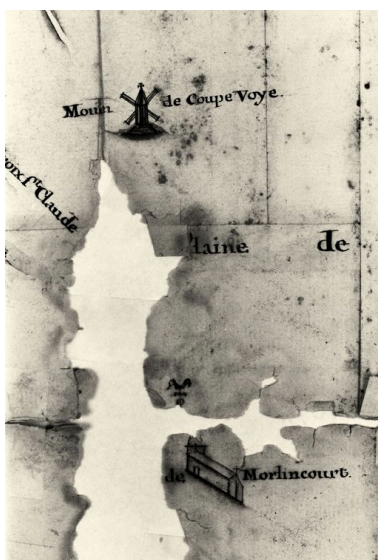 Mouin de Coupe Voye.
oix St Claude
laine de
de Morlincourt.